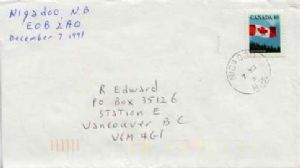 Nigadoo, N.B.
E0B 2A0
December 7 1991
CANADA
R Edward
PO Box 35126
Station E
Vancouver B C
V6M 4G1